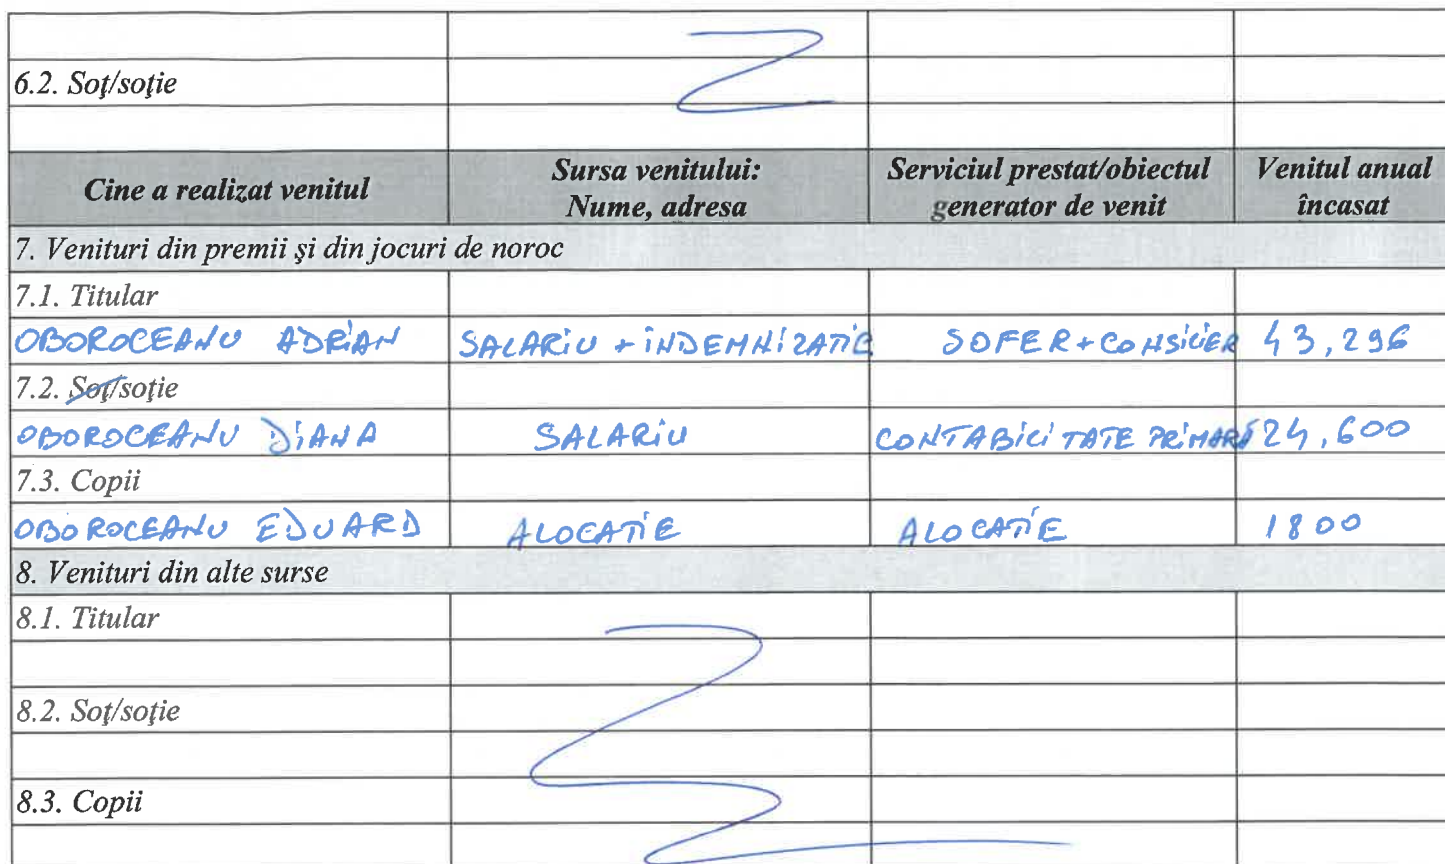 6.2. Soţ/soţie
Cine a realizat venitul Sursa venitului: Nume, adresa Serviciul prestat/obiectul generator de venit Venitul anual încasat
7. Venituri din premii şi din jocuri de noroc
7.1. Titular
OBOROCEANU ADRIAN SALARIU + INDEMNIZATIE SOFER + CONSILIER 43,296
7.2. Soţ/soţie
OBOROCEANU DIANA SALARIU CONTABILITATE PRIMARĂ 24,600
7.3. Copii
OBOROCEANU EDUARD ALOCATIE ALOCATIE 1800
8. Venituri din alte surse
8.1. Titular
8.2. Soţ/soţie
8.3. Copii